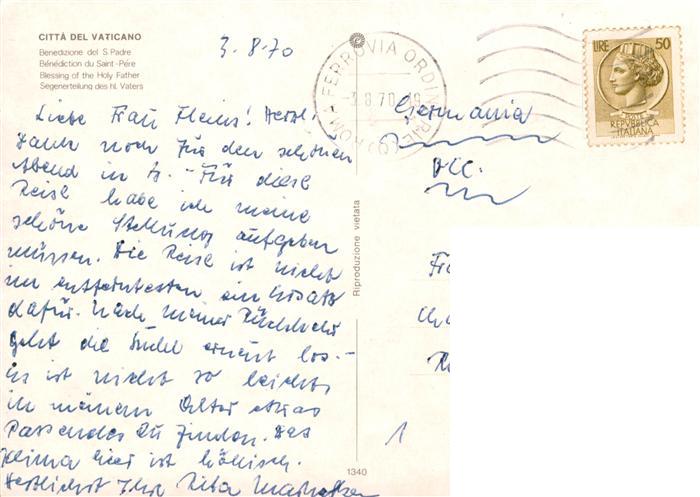 CITTÀ DEL VATICANO
Benedizione del S. Padre
Bénédiction du Saint-Père
Blessing of the Holy Father
Segenerteilung des hl. Vaters
3.8.70
Liebe Frau Heins! Herzl.
Dank noch für den schönen
Abend in B. - Für diese
Reise habe ich meine
schöne Stellung aufgeben
müssen. Die Reise ist nicht
im entferntesten ein Ersatz
dafür. Nach meiner Rückkehr
geht die Suche erneut los. -
Es ist nicht so leicht,
in meinem Alter etwas
Passendes zu finden. Das
Klima hier ist höllisch.
Herzlichst Ihre Rita
Riproduzione vietata
1340
ROMA FERROVIA
3.8.70
LIRE 50
POSTE
REPVBBLICA
ITALIANA
Germania
Fr
1